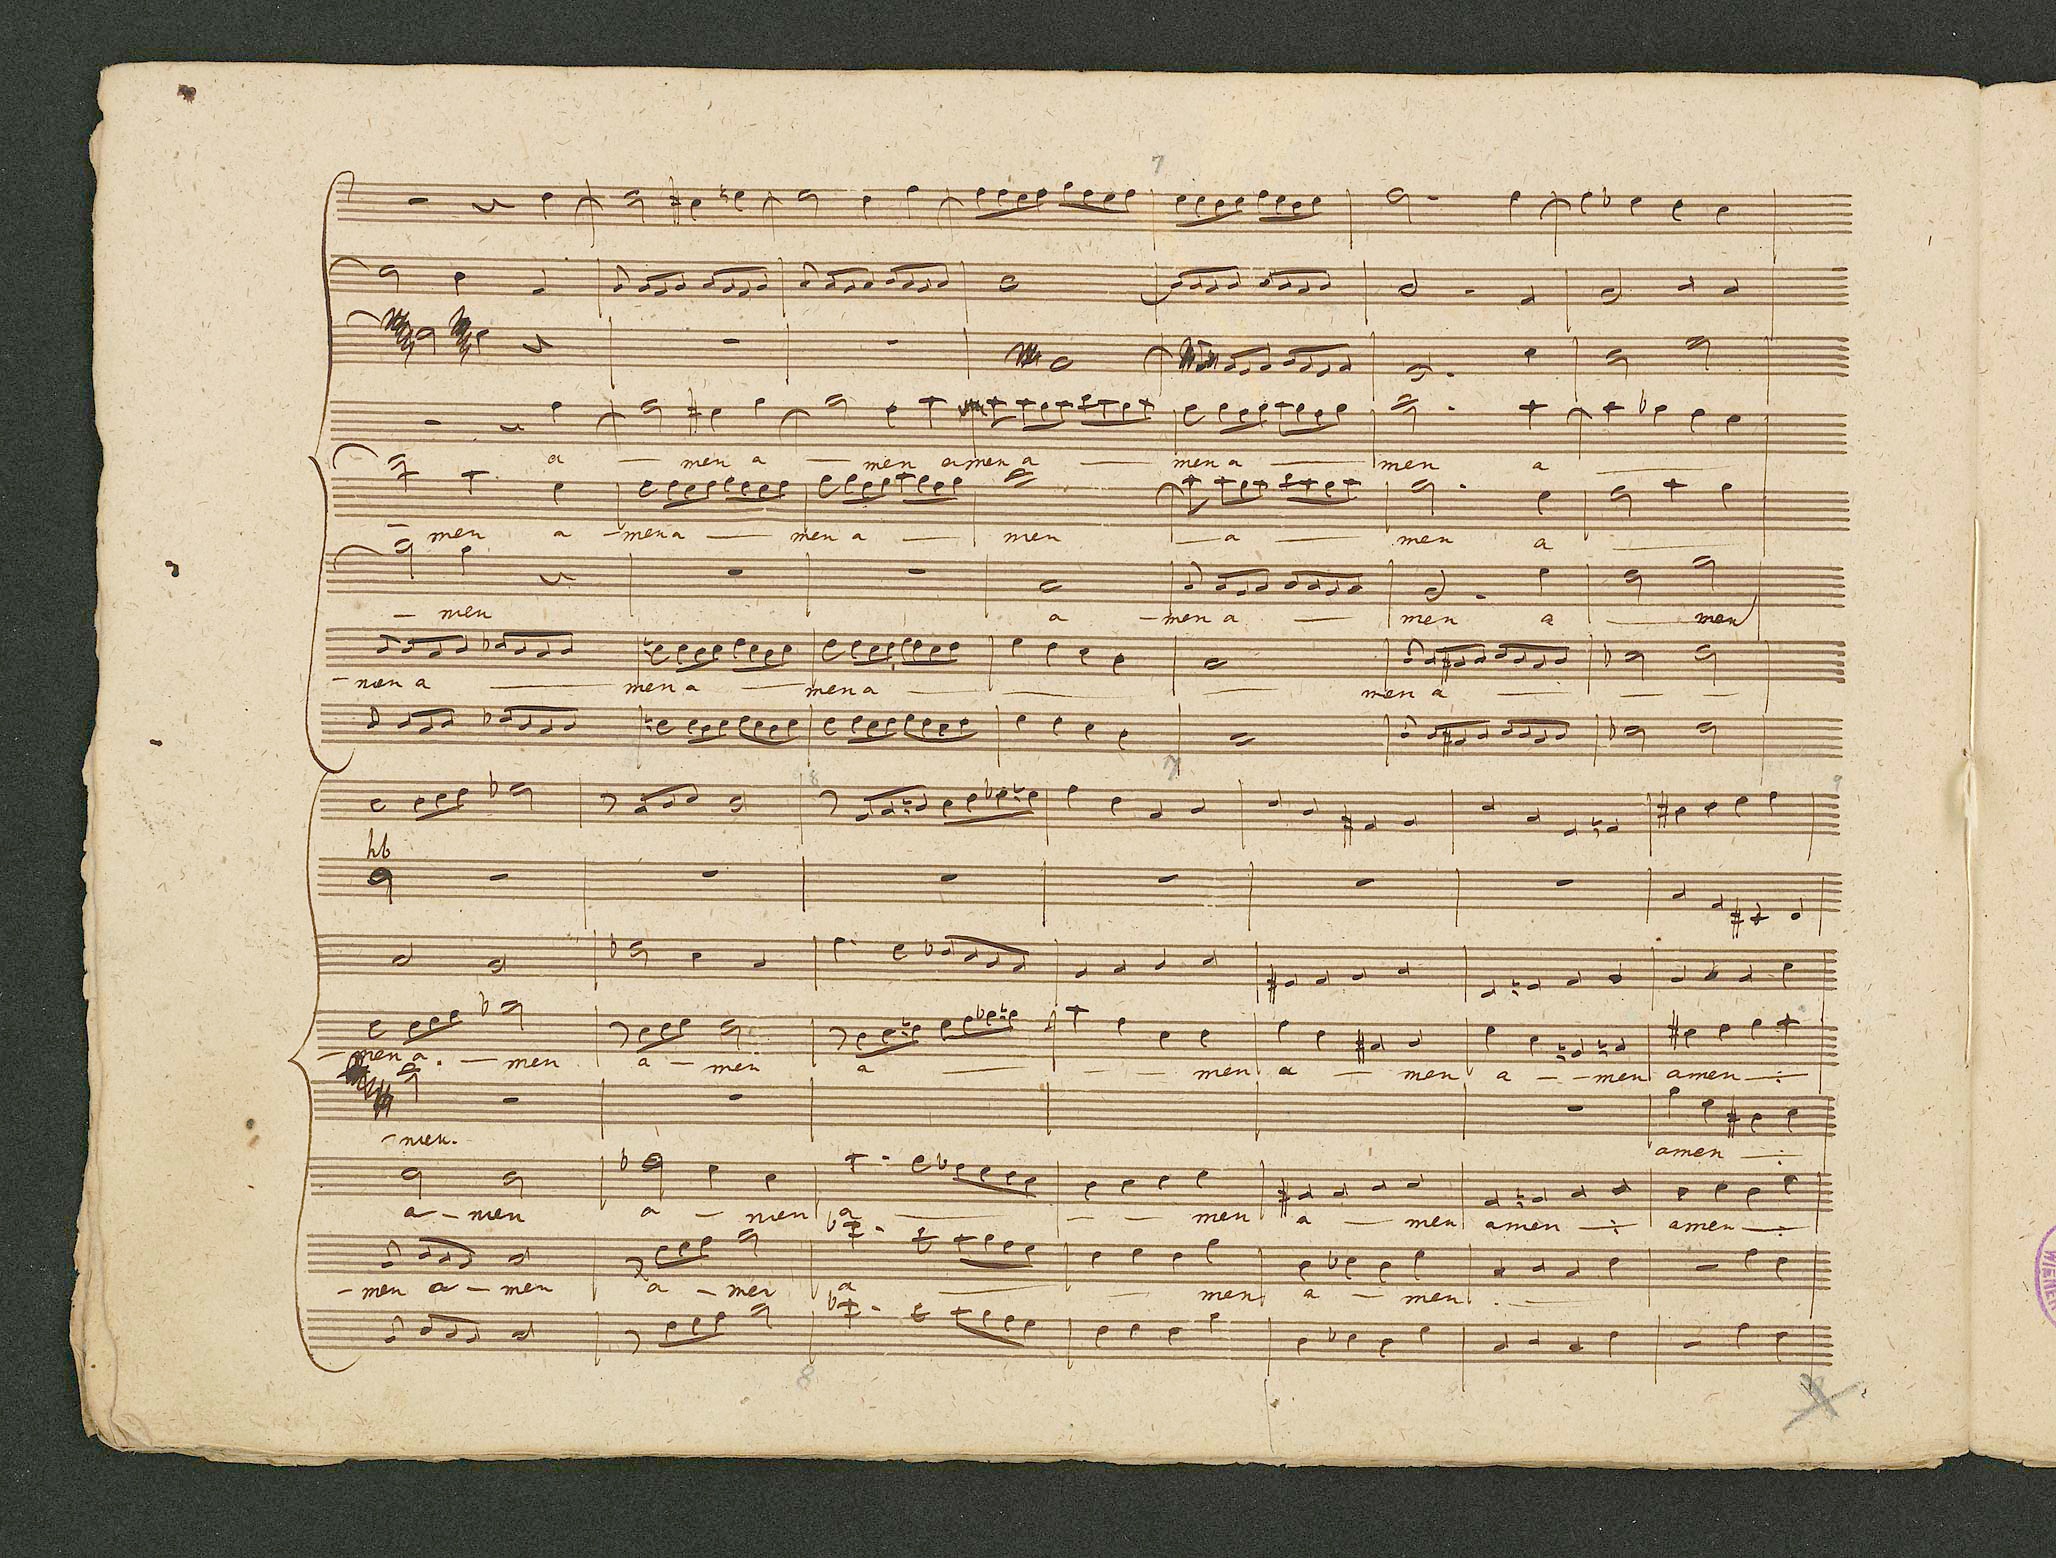 7
a — men a — men amen a — men a — men a —
— men a — men a — men a — men — a — men a —
— men a — men a — men a — men
— men a — men a — men a — men a —
8 7 9
hb
— men a — men a — men a — men a — men a — men amen —
— men. amen —
a — men a — men a — men a — men amen — amen —
— men a — men a — men a — men a — men
8
WIENER